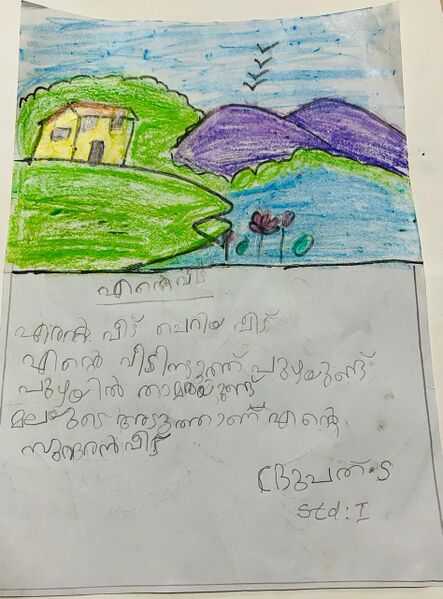 എന്റെ വീട്
എന്റെ വീട് ചെറിയ വീട്
എന്റെ വീടിനടുത്ത് പുഴയുണ്ട്
പുഴയിൽ താമരയുണ്ട്
മലയുടെ അടുത്താണ് എന്റെ
സുന്ദരൻ വീട്
ദ്രുപത്. S
Std : I